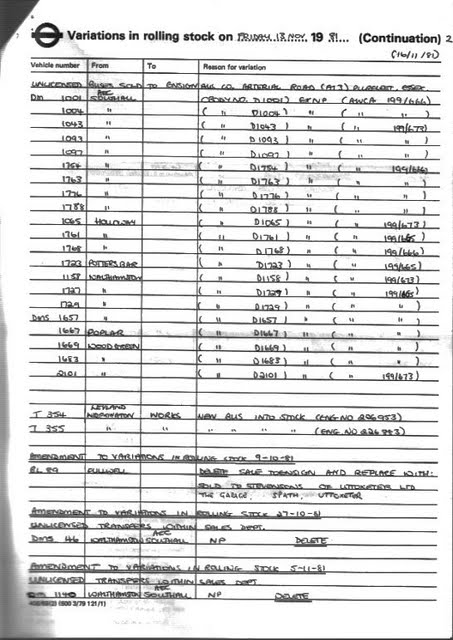 Variations in rolling stock on FRIDAY 13 NOV. 19 81... (Continuation) 2
(16/11/81)
Vehicle number From To Reason for variation
UNLICENSED BUSES SOLD TO ENSIGN BUS CO. ARTERIAL ROAD (A13) PURFLEET, ESSEX
DM 1001 AEC SOUTHALL (BODY NO. D1001) EXNP (AWCA 199/666)
1004 " ( " D1004) " ( " " )
1043 " ( " D1043) " ( " 199/673)
1093 " ( " D1093) " ( " " )
1097 " ( " D1097) " ( " " )
1754 " ( " D1754) " ( " 199/666)
1763 " ( " D1763) " ( " " )
1776 " ( " D1776) " ( " " )
1788 " ( " D1788) " ( " " )
1065 HOLLOWAY ( " D1065) " ( " 199/673)
1761 " ( " D1761) " ( " 199/665)
1768 " ( " D1768) " ( " 199/666)
1723 POTTERS BAR ( " D1723) " ( " 199/665)
1158 WALTHAMSTOW ( " D1158) " ( " 199/673)
1727 " ( " ) " ( " 199/665)
1729 " ( " D1729) " ( " " )
DMS 1657 " ( " D1657) " ( " " )
1667 POPLAR ( " D1667) " ( " " )
1669 WOOD GREEN ( " D1669) " ( " " )
1683 " ( " D1683) " ( " " )
2101 " ( " D2101) " ( " 199/673)
T 354 LEYLAND WORKINGTON WORKS NEW BUS INTO STOCK (ENG NO )
T 355 " " " " " " (ENG NO )
AMENDMENT TO VARIATIONS IN ROLLING STOCK 9-10-81
BL 89 FULWELL DELETE SALE TO ENSIGN AND REPLACE WITH:
SOLD TO STEVENSONS OF UTTOXETER LTD
THE GARAGE, SPATH, UTTOXETER
AMENDMENT TO VARIATIONS IN ROLLING STOCK 27-10-81
UNLICENSED TRANSFERS WITHIN SALES DEPT.
DMS 46 WALTHAMSTOW AEC SOUTHALL NP DELETE
AMENDMENT TO VARIATIONS IN ROLLING STOCK 5-11-81
UNLICENSED TRANSFERS WITHIN SALES DEPT
DM 1140 WALTHAMSTOW AEC SOUTHALL NP DELETE
(800 3/79 121/1)